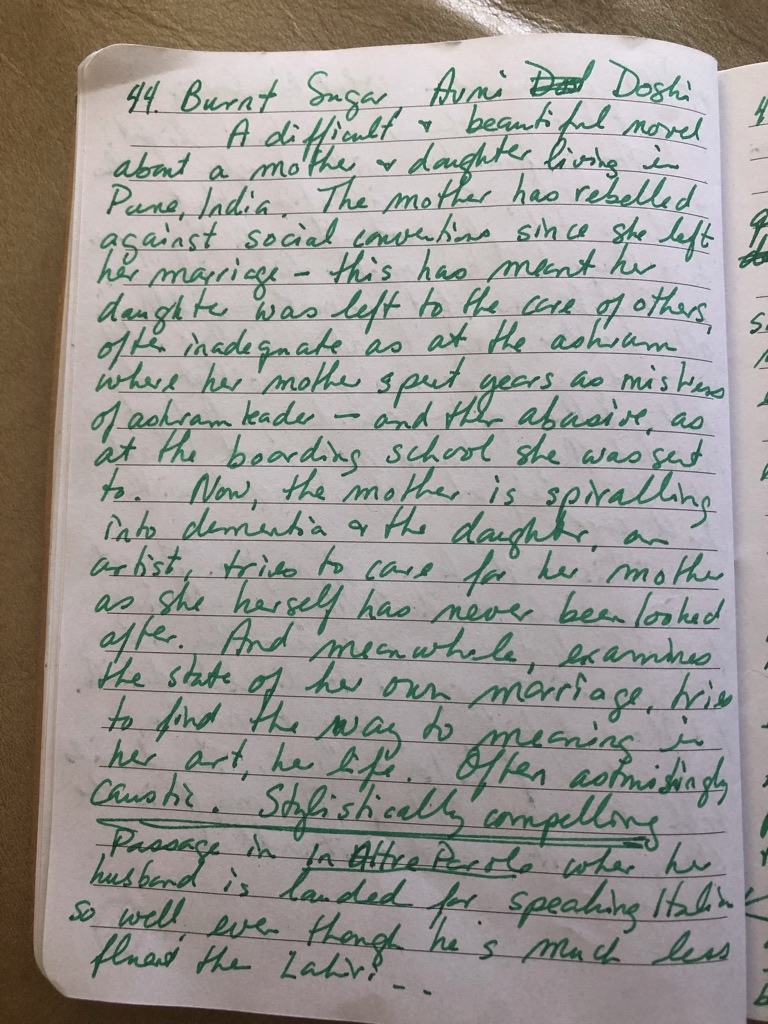 44. Burnt Sugar, Avni Dosl Doshi
A difficult & beautiful novel
about a mother & daughter living in
Pune, India. The mother has rebelled
against social conventions since she left
her marriage – this has meant her
daughter was left to the care of others,
often inadequate as at the ashram
where her mother spent years as mistress
of ashram leader – and then abusive, as
at the boarding school she was sent
to. Now, the mother is spiralling
into dementia & the daughter, an
artist, tries to care for her mother
as she herself has never been looked
after. And meanwhile, examines
the state of her own marriage, tries
to find the way to meaning in
her art, her life. Often astonishingly
caustic. Stylistically compelling
Passage in In Altre Parole wher her
husband is lauded for speaking Italian
so well, even though he's much less
fluent the Lahiri...